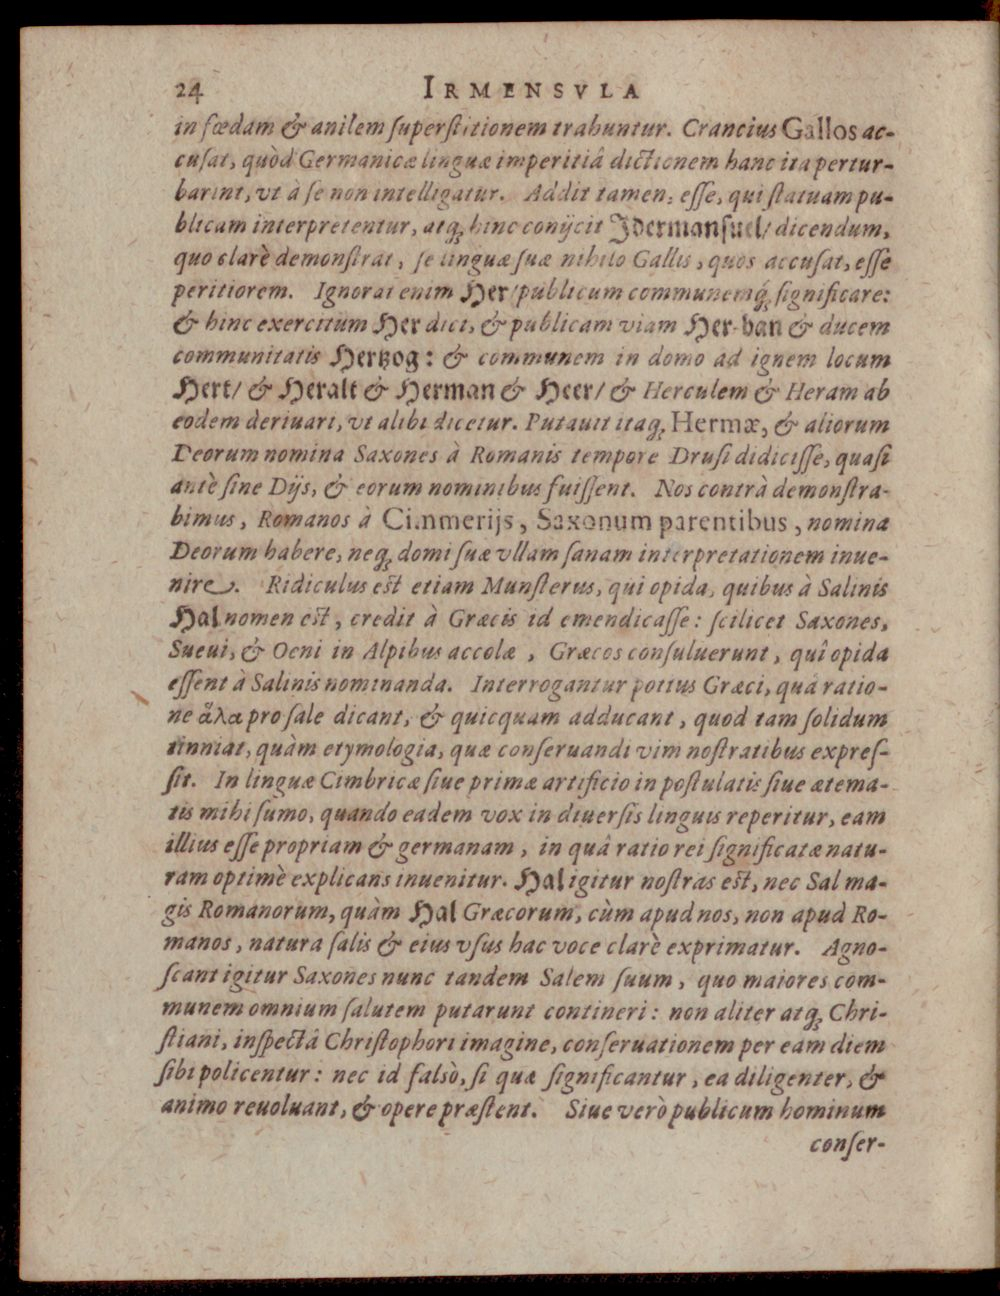 24 IRMENSVLA
in fœdam & anilem ſuperſtitionem trahuntur. Crancius Gallos ac-
cuſat, quòd Germanicæ linguæ imperitiâ dictionem hanc ita pertur-
barint, vt à ſe non intelligatur. Addit tamen, eſſe, qui ſtatuam pu-
blicam interpretentur, atq; hinc conijcit Jdermanſuel/ dicendum,
quo clarè demonſtrat, ſe linguæ ſuæ nihilo Gallis, quos accuſat, eſſe
peritiorem. Ignorat enim Her/ publicum communemq́; ſignificare:
& hinc exercitum Her dici, & publicam viam Her-ban & ducem
communitatis Hertzog: & communem in domo ad ignem locum
Hert/ & Heralt & Herman & Heer/ & Herculem & Heram ab
eodem deriuari, vt alibi dicetur. Putauit itaq; Hermæ, & aliorum
Deorum nomina Saxones à Romanis tempore Druſi didiciſſe, quaſi
antè ſine Dijs, & eorum nominibus fuiſſent. Nos contrà demonſtra-
bimus, Romanos à Cimmerijs, Saxonum parentibus, nomina
Deorum habere, neq; domi ſuæ vllam ſanam interpretationem inue-
nire. Ridiculus est etiam Munſterus, qui opida, quibus à Salinis
Hal nomen est, credit à Græcis id emendicaſſe: ſcilicet Saxones,
Sueui, & Oeni in Alpibus accolæ, Græcos conſuluerunt, quî opida
eſſent à Salinis nominanda. Interrogantur potius Græci, quâ ratio-
ne ἅλα pro ſale dicant, & quicquam adducant, quod tam ſolidum
tinniat, quàm etymologia, quæ conſeruandi vim noſtratibus expreſ-
ſit. In linguæ Cimbricæ ſiue primæ artificio in poſtulatis ſiue ætema-
tis mihi ſumo, quando eadem vox in diuerſis linguis reperitur, eam
illius eſſe propriam & germanam, in quâ ratio rei ſignificatæ natu-
ram optimè explicans inuenitur. Hal igitur noſtras est, nec Sal ma-
gis Romanorum, quàm Hal Græcorum, cùm apud nos, non apud Ro-
manos, natura ſalis & eius vſus hac voce clarè exprimatur. Agno-
ſcant igitur Saxones nunc tandem Salem ſuum, quo maiores com-
munem omnium ſalutem putarunt contineri: non aliter atq; Chri-
ſtiani, inſpectâ Chriſtophori imagine, conſeruationem per eam diem
ſibi policentur: nec id falsò, ſi quæ ſignificantur, ea diligenter, &
animo reuoluant, & opere præſtent. Siue verò publicum hominum
conſer-